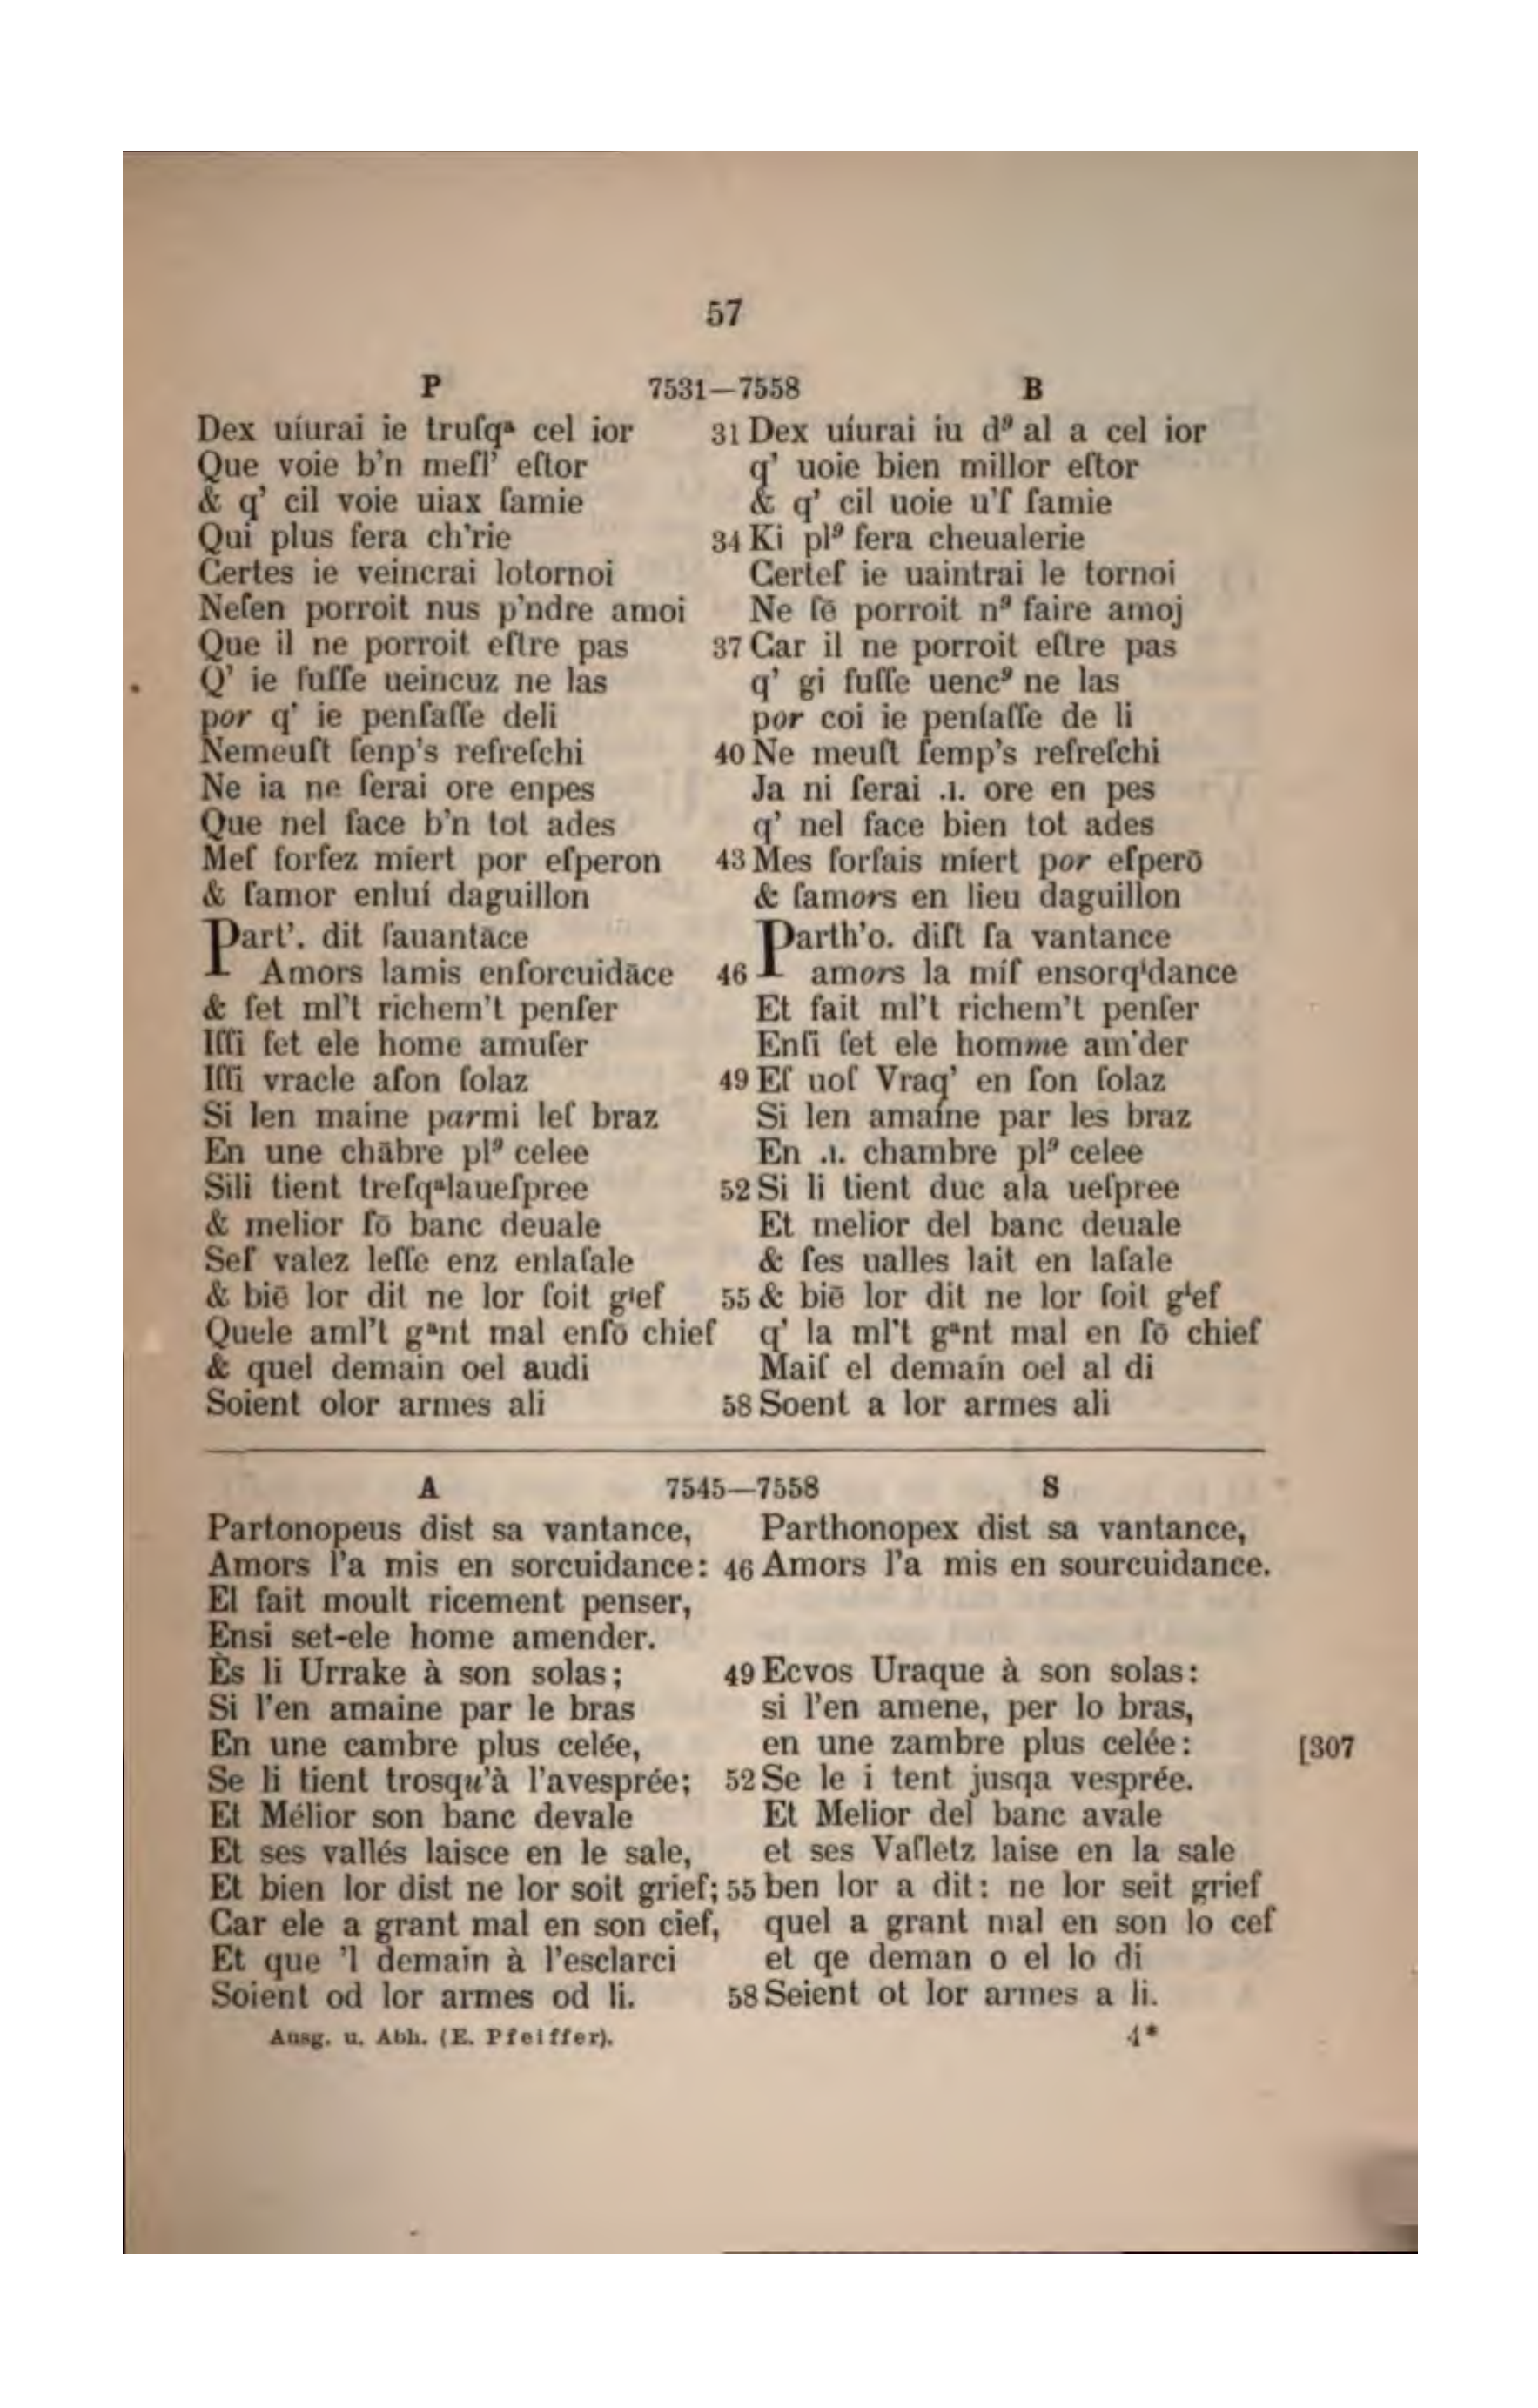 57
P 7531—7558 B
Dex uíurai ie truſqᵃ cel ior 31 Dex uíurai iu d⁹ al a cel ior
Que voie b'n meſl' eſtor q' uoie bien millor eſtor
& q' cil voie uiax ſamie & q' cil uoie u'ſ ſamie
Qui plus fera ch'rie 34 Ki pl⁹ fera cheualerie
Certes ie veincrai lotornoi Certeſ ie uaintrai le tornoi
Neſen porroit nus p'ndre amoi Ne ſē porroit n⁹ faire amoj
Que il ne porroit eſtre pas 37 Car il ne porroit eſtre pas
Q' ie fuſſe ueincuz ne las q' gi fuſſe uenc⁹ ne las
por q' ie penſaſſe deli por coi ie penſaſſe de li
Nemeuſt ſenp's refreſchi 40 Ne meuſt ſemp's refreſchi
Ne ia ne ſerai ore enpes Ja ni ſerai .ı. ore en pes
Que nel face b'n tot ades q' nel face bien tot ades
Meſ forfez míert por eſperon 43 Mes forfais míert por eſperō
& ſamor enluí daguillon & ſamors en lieu daguillon
Part'. dit ſauantāce Parth'o. diſt ſa vantance
Amors lamis enſorcuidāce 46 amors la míſ ensorqⁱdance
& fet ml't richem't penſer Et fait ml't richem't penſer
Iſſi ſet ele home amuſer Enſi ſet ele homme am'der
Iſſi vracle aſon ſolaz 49 Eſ uoſ Vraq' en ſon ſolaz
Si len maine parmi leſ braz Si len amaíne par les braz
En une chābre pl⁹ celee En .ı. chambre pl⁹ celee
Sili tient treſqᵃlaueſpree 52 Si li tient duc ala ueſpree
& melior ſō banc deuale Et melior del banc deuale
Seſ valez leſſe enz enlaſale & ſes ualles lait en laſale
& biē lor dit ne lor ſoit gⁱef 55 & biē lor dit ne lor ſoit gⁱef
Quele aml't gᵃnt mal enſō chief q' la ml't gᵃnt mal en ſō chief
& quel demain oel audi Maiſ el demaín oel al di
Soient olor armes ali 58 Soent a lor armes ali
A 7545—7558 S
Partonopeus dist sa vantance, Parthonopex dist sa vantance,
Amors l'a mis en sorcuidance: 46 Amors l'a mis en sourcuidance.
El fait moult ricement penser,
Ensi set-ele home amender.
Ès li Urrake à son solas; 49 Ecvos Uraque à son solas:
Si l'en amaine par le bras si l'en amene, per lo bras,
En une cambre plus celée, en une zambre plus celée: [307
Se li tient trosqu'à l'avesprée; 52 Se le i tent jusqa vesprée.
Et Mélior son banc devale Et Melior del banc avale
Et ses vallés laisce en le sale, et ses Vaſletz laise en la sale
Et bien lor dist ne lor soit grief; 55 ben lor a dit: ne lor seit grief
Car ele a grant mal en son cief, quel a grant mal en son lo cef
Et que 'l demain à l'esclarci et qe deman o el lo di
Soient od lor armes od li. 58 Seient ot lor armes a li.
Ausg. u. Abh. (E. Pfeiffer). 4*